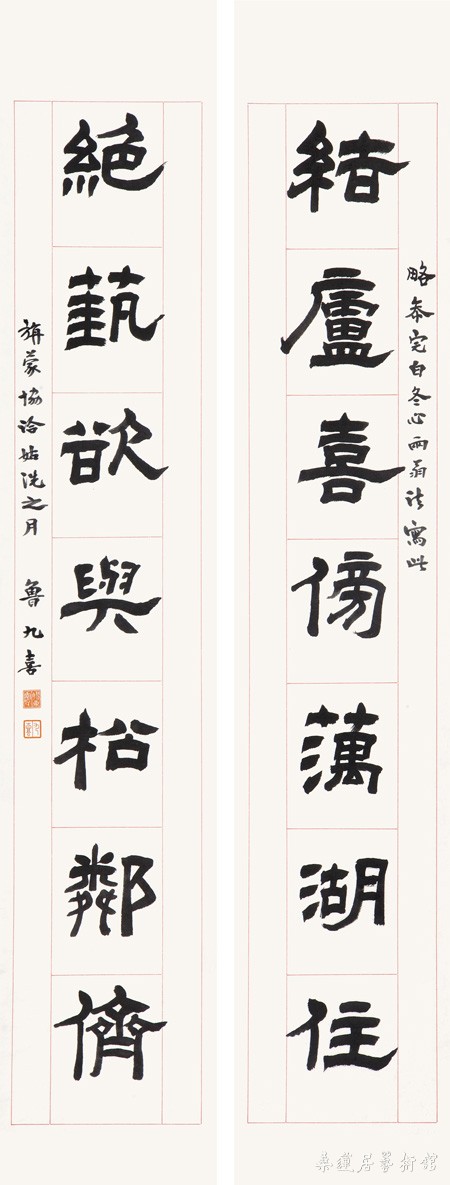 結廬喜傍蕅湖住
略參完白冬心兩翁法寫此
絕蓺欲與松鄰儕
旃蒙協洽姑洗之月 魯九喜
桑蓮居藝術館